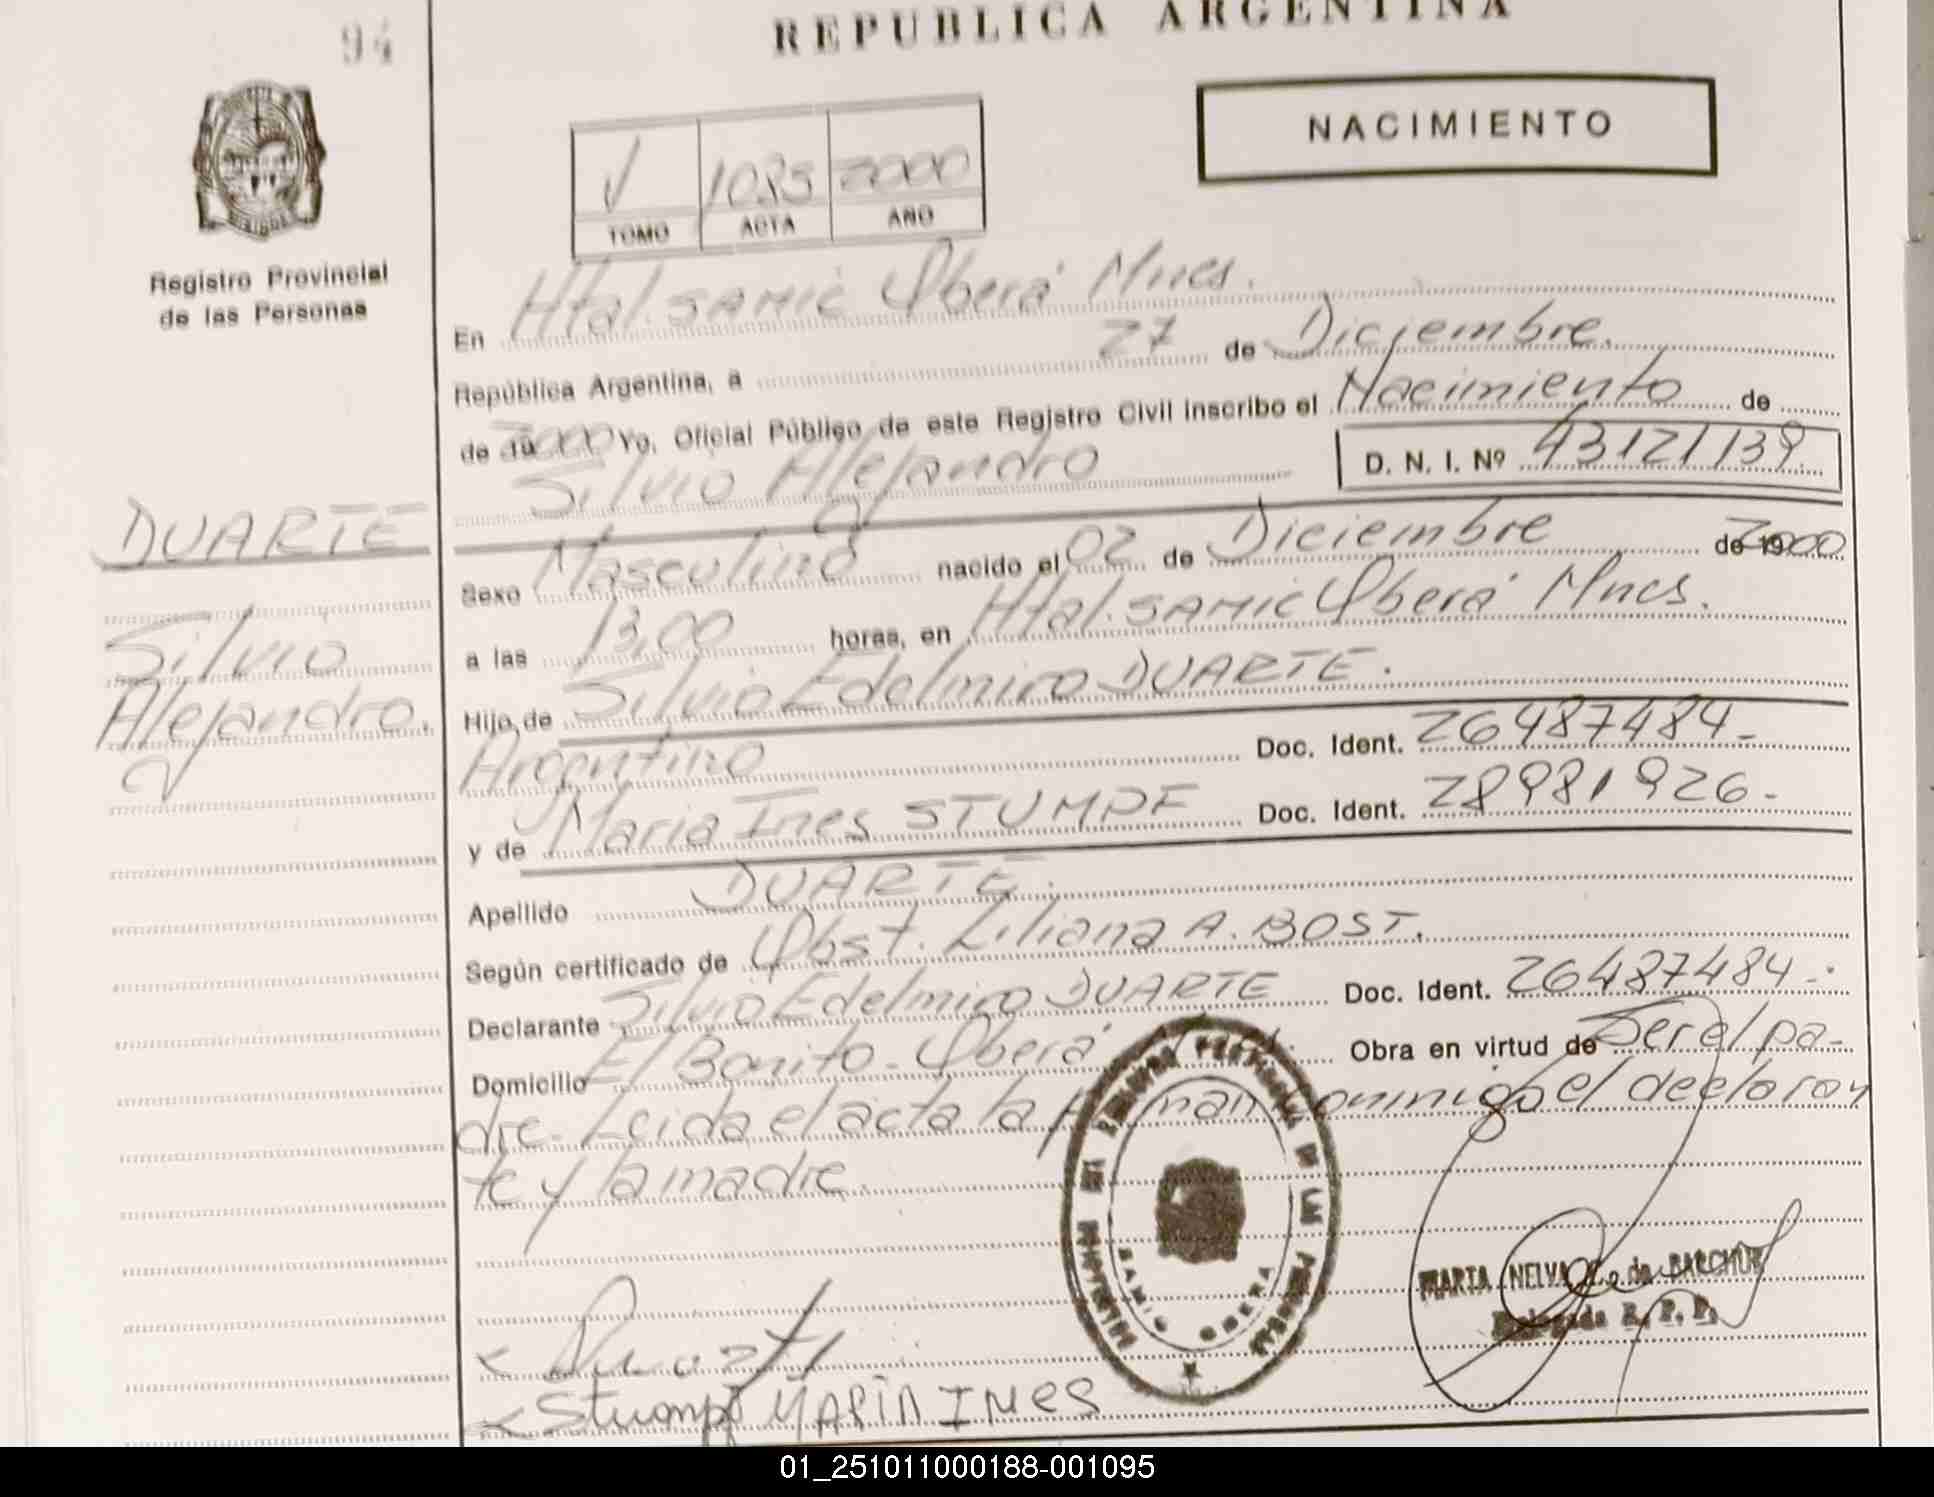 94
REPUBLICA ARGENTINA
NACIMIENTO
V 1095 2000
TOMO ACTA AÑO
Registro Provincial
de las Personas
En Htal. SAMIC Oberá Mnes.
República Argentina, a 27 de Diciembre.
de 19 2000 Yo, Oficial Público de este Registro Civil inscribo el Nacimiento de
Silvio Alejandro D. N. I. Nº 43121139
DUARTE
Silvio
Alejandro.
Sexo Masculino nacido el 02 de Diciembre de 19 2000
a las 13,00 horas, en Htal. SAMIC Oberá Mnes.
Hijo de Silvio Edelmiro DUARTE.
Argentino Doc. Ident. 26487484-
y de Maria Ines STUMPF Doc. Ident. 28981926-
Apellido DUARTE.
Según certificado de Obst. Liliana A. BOST.
Declarante Silvio Edelmiro DUARTE Doc. Ident. 26487484-
Domicilio El Bonito - Oberá Obra en virtud de Ser el pa-
dre. Leida el acta la firman conmigo el declaran
te y la madre.
REGISTRO PROVINCIAL DE LAS PERSONAS
SAMIC OBERA
MARTA NELVA de BARCHUK
R. P. P.
x Duarte
x Stumpf MARIA INES
01_251011000188-001095